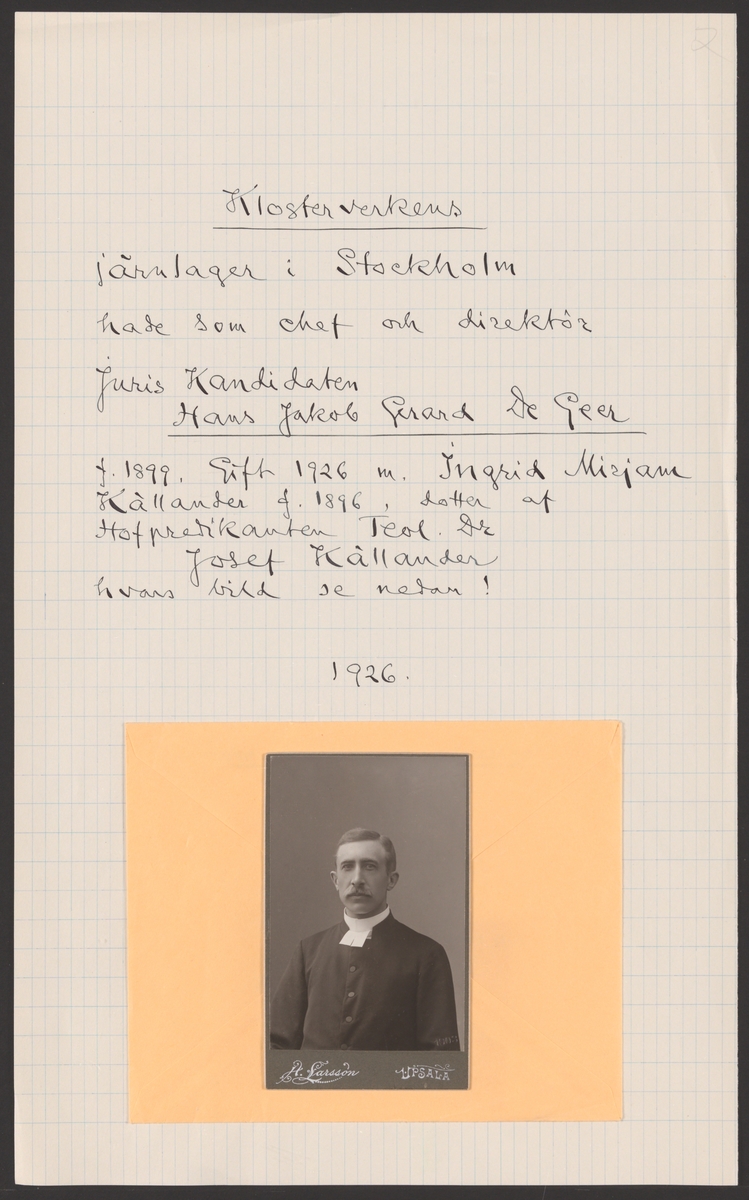 2
Klosterverkens
järnlager i Stockholm
hade som chef och direktör
Juris Kandidaten
Hans Jakob Gerard De Geer
f. 1899. Gift 1926 m. Ingrid Mirjam
Källander f. 1896, dotter af
Hofpredikanten Teol. Dr
Josef Källander
hvars bild se nedan!
1926.
A. Larsson UPSALA